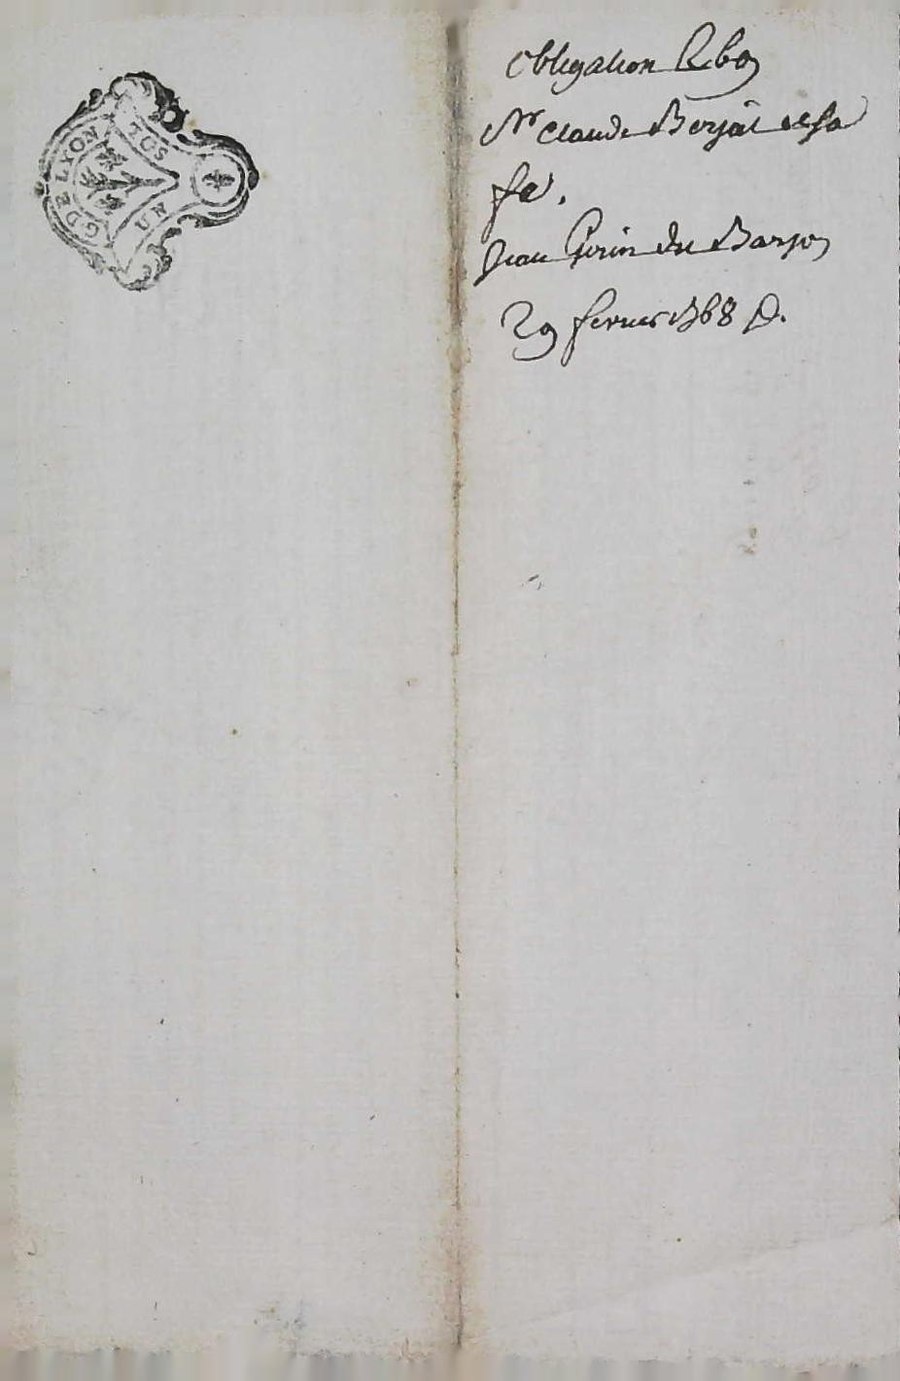 G DE LYON
UN SOL
obligation
Sr Claude Berjat et sa
fe.
Jean Perin du Barjon
29 fevrier 1768 D.